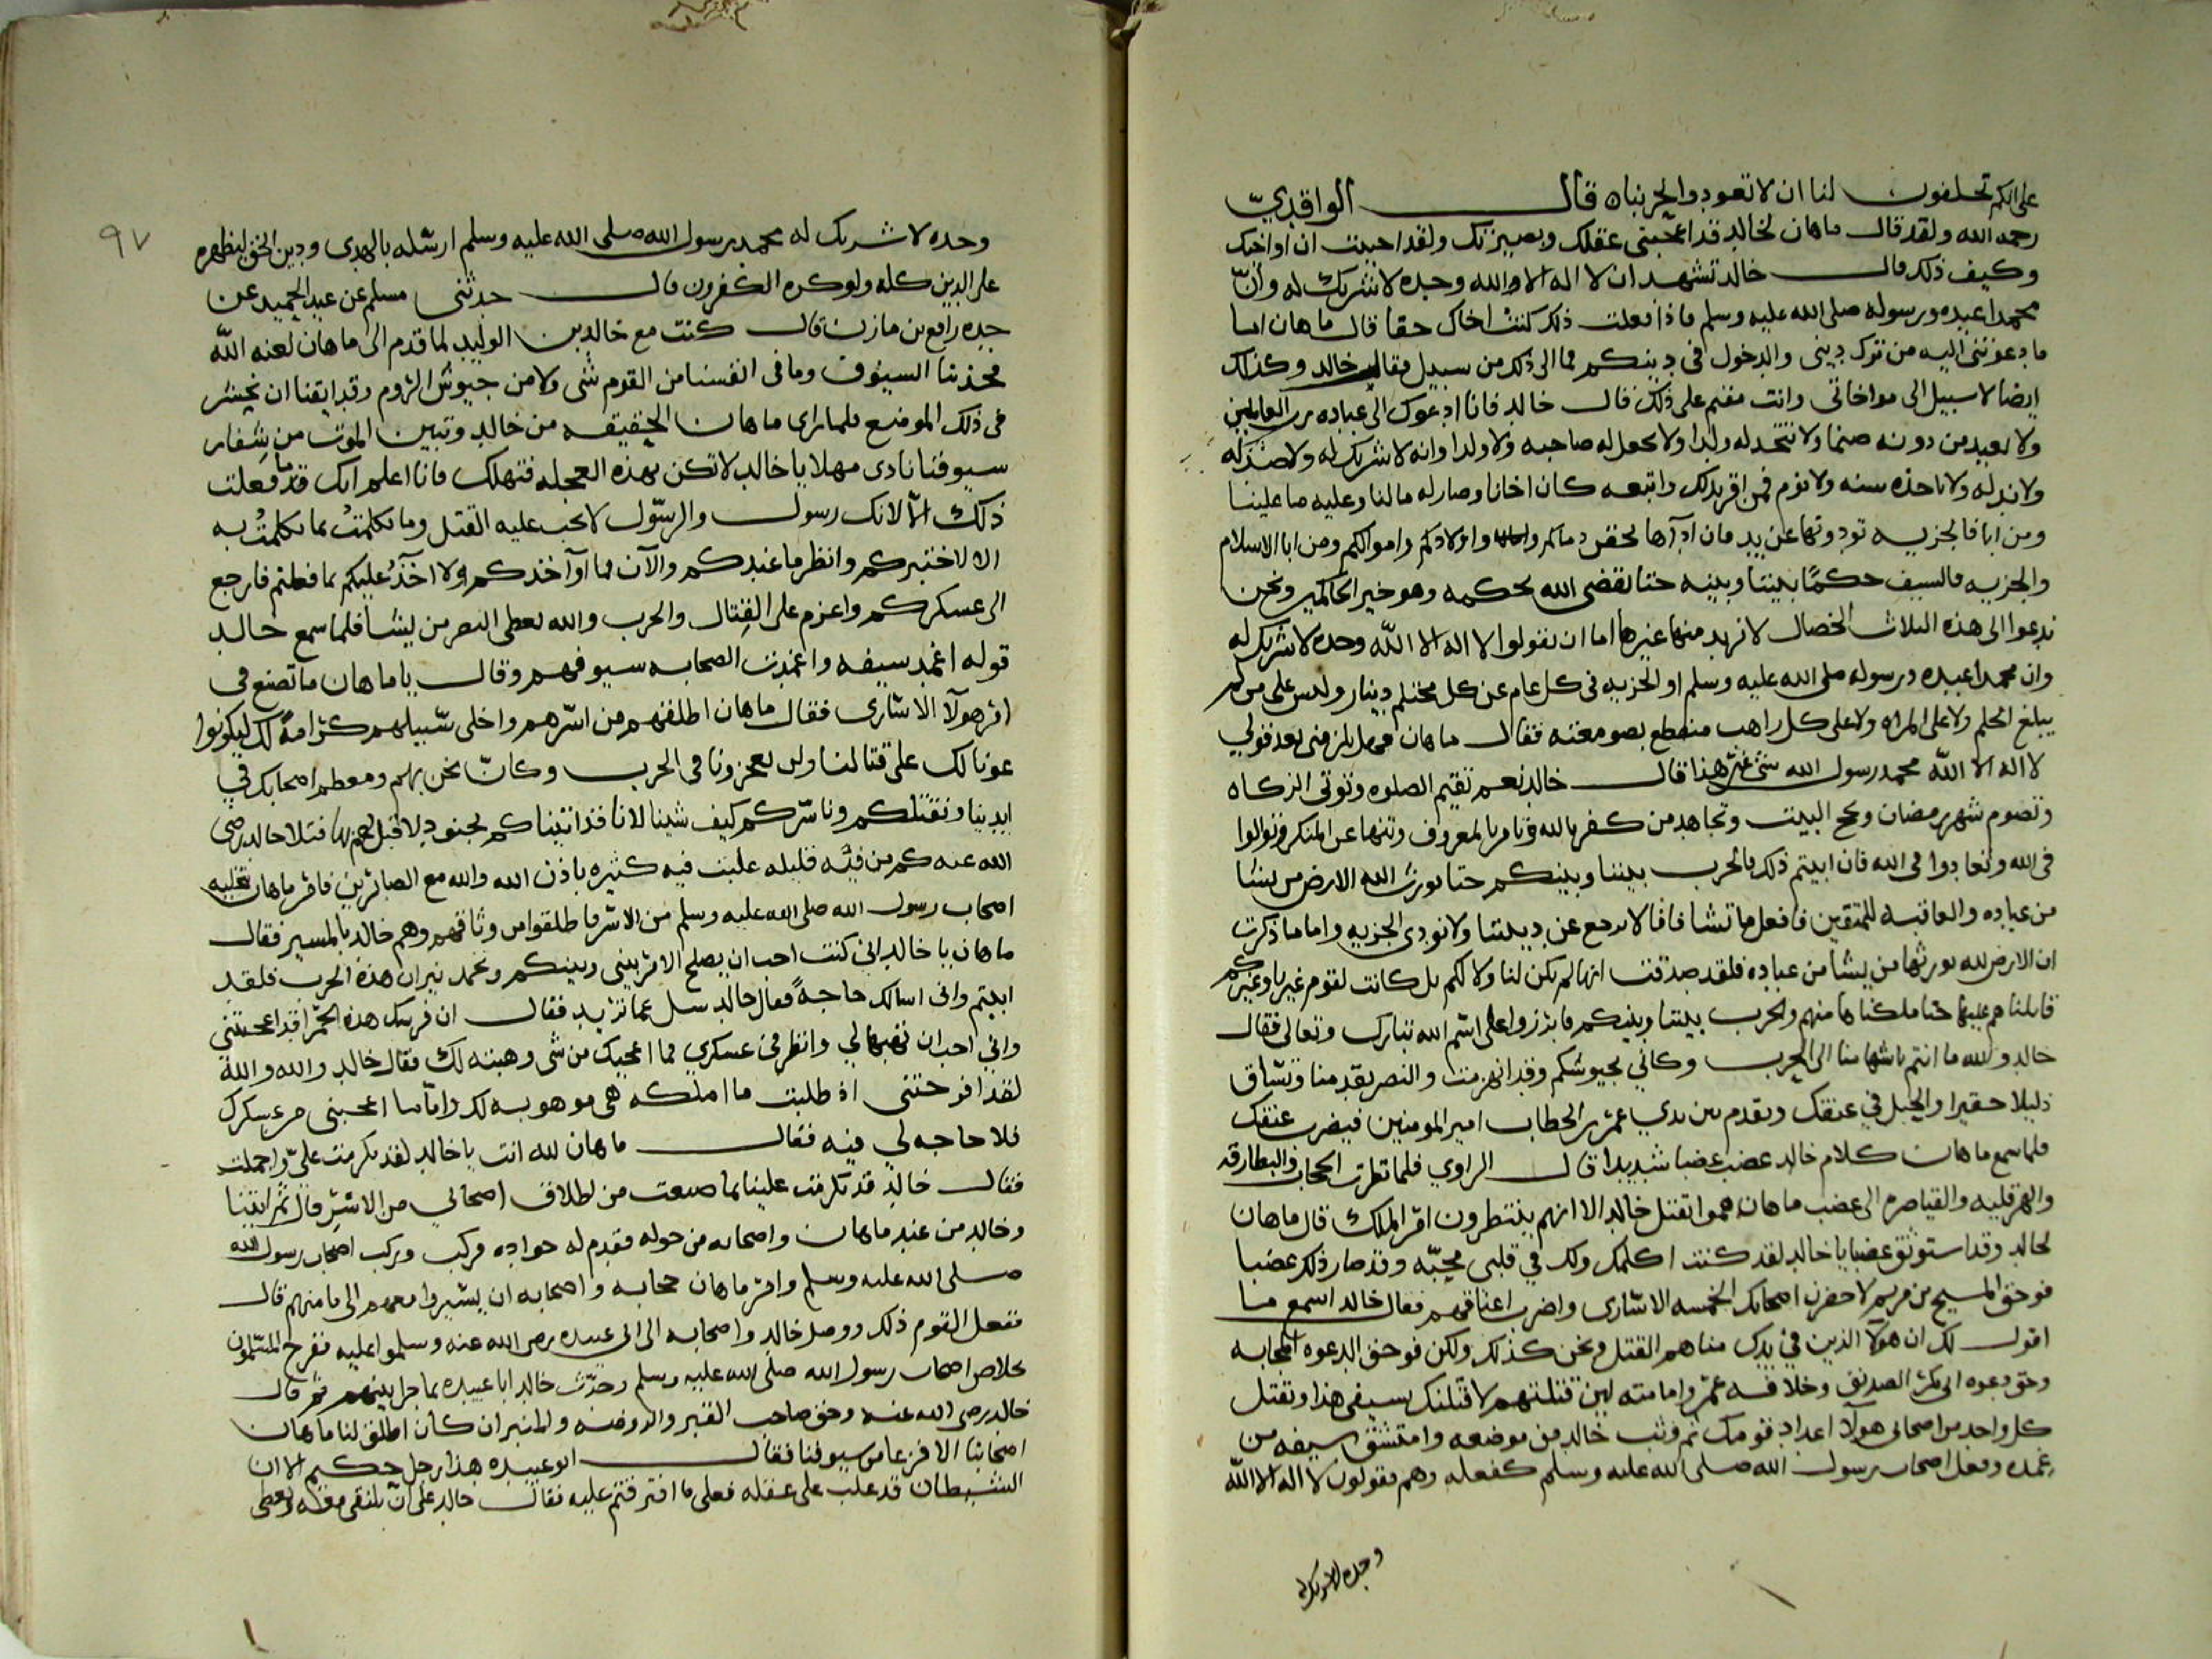 على انكم تحلفون لنا ان لا تعودوا لحربنا ه قال الواقديّ
رحمه الله ولقد قال ماهان لخالد قد اعجبتني عقلك وبصيرتك ولقد احببت ان اواخيك
وكيف ذلك قال خالد تشهد ان لا اله الا الله وحده لا شريك له وأنّ
محمدا عبده ورسوله صلى الله عليه وسلم فاذا فعلت ذلك كنت اخاك حقا قال ماهان اما
ما دعوتني اليه من ترك ديني والدخول في دينكم فما الى ذلك من سبيل فقال خالد وكذلك
ايضا لا سبيل الى مواخاتي وانت مقيم على ذلك قال خالد فانا ادعوك الى عباده رب العالمين
ولا تعبد من دونه صنما ولا تتخد له ولدا ولا تجعل له صاحبه ولا ولدا وانه لا شريك له ولا ضد له
ولا ند له ولا تاخذه سنه ولا نوم فمن اقر بذلك واتبعه كان اخانا وصار له ما لنا وعليه ما علينا
ومن ابا فالجزيه تودونها عن يد فان ادآها تحقن دماكم واولادكم واموالكم ومن ابا الاسلام
والجزيه فالسيف حكمًا بيننا وبينه حتا يقضي الله بحكمه وهو خير الحاكمين ونحن
ندعوا الى هذه الثلاث الخصال لا نريد منها غيرها اما ان تقولوا لا اله الا الله وحده لا شريك له
وان محمدا عبده ورسوله صلى الله عليه وسلم او الجزيه في كل عام عن كل محتلم دينار وليس على من لم
يبلغ الحلم ولا على المراه ولا على كل راهب منقطع بصومعته فقال ماهان فهل يلزمني بعد قولي
لا اله الا الله محمد رسول الله شي غير هذا قال خالد نعم تقيم الصلوه وتوتي الزكاه
وتصوم شهر رمضان وتحج البيت وتجاهد من كفر بالله وتامر بالمعروف وتنها عن المنكر وتوالوا
في الله وتعادوا في الله فان ابيتم ذلك فالحرب بيننا وبينكم حتا يورث الله الارض من يشا
من عباده والعاقبه للمتقين فافعل ما تشا فانا لا نرجع عن ديننا ولا نودي الجزيه واما ما ذكرت
ان الارض لله يورثها من يشا من عباده فلقد صدقت انها لم تكن لنا ولا لكم بل كانت لقوم غيرنا وغيركم
قاتلناهم عليها حتا ملكناها منهم والحرب بيننا وبينكم فابرزوا على اسم الله تبارك وتعالى فقال
خالد والله ما انتم باشها منا الى الحرب وكاني بجيوشكم وقد انهزمت والنصر يقدمنا وتساق
ذليلا حقيرا والحبل في عنقك وتقدم بين يدي عمر بن الخطاب امير المومنين فيضرب عنقك
فلما سمع ماهان كلام خالد غضب غضبا شديدا قال الراوي فلما نظرت الحجاب والبطارقه
والهرقليه والقياصره الى غضب ماهان هموا بقتل خالد الا انهم ينتظرون امر الملك قال ماهان
لخالد وقد استوثق غضبا يا خالد لقد كنت اكلمك ولك في قلبي محبّه وقد صار ذلك غضبا
فوحق المسيح بن مريم لاحضرن اصحابك الخمسه الاسارى واضرب اعناقهم فقال خالد اسمع ما
اقول لك ان هولآ الذين في يدك مناهم القتل ونحن كذلك ولكن فوحق الدعوه المجابه
وحق دعوه ابي بكر الصديق وخلافه عمر وامامته لين قتلتهم لاقتلنك بسيفي هذا ويقتل
كل واحد من اصحابي هولآ اعداد قومك ثم وثب خالد من موضعه وامتشق سيفه من
غمده وفعل اصحاب رسول الله صلى الله عليه وسلم كفعله وهم يقولون لا اله الا الله
وحده لا شريك له
٩٧
وحده لا شريك له محمد رسول الله صلى الله عليه وسلم ارسله بالهدى ودين الحق ليظهره
على الدين كله ولو كره الكفرون قال حدثني مسلم عن عبد الحميد عن
جده رافع بن مازن قال كنت مع خالد بن الوليد لما قدم الى ماهان لعنه الله
فجذبنا السيوف وما في انفسنا من القوم شي ولا من جيوش الروم وقد ايقنا ان نحشر
في ذلك الموضع فلما راى ماهان الحقيقه من خالد وتبين الموت من شفار
سيوفنا نادى مهلا يا خالد لا تكن بهذه العجله فتهلك فانا اعلم انك ما فعلت
ذلك الا لانك رسول والرسول لا يجب عليه القتل وما تكلمتُ بما تكلمتُ به
الا لاختبركم وانظر ما عندكم والآن فما اواخدكم ولا اخذ عليكم بما فعلتم فارجع
الى عسكركم واعزم على القتال والحرب والله يعطي النصر من يشا فلما سمع خالد
قوله اغمد سيفه واغمدت الصحابه سيوفهم وقال يا ماهان ما تصنع في
امر هولآ الاسارى فقال ماهان اطلقهم من اسرهم واخلي سبيلهم كرامة لك ليكونوا
عونا لك على قتالنا ولن يعجزونا في الحرب وكانّ نحن بهم ومعظم اصحابك في
ايدينا ونقتلكم وناسركم كيف شينا لانا قد اتيناكم بجنود لا قبل لكم بها فتلا خالد رضي
الله عنه كم من فيّه قليله غلبت فيه كثيره باذن الله والله مع الصابرين فامر ماهان بتخليه
اصحاب رسول الله صلى الله عليه وسلم من الاسر فاطلقوا من وثاقهم وهم خالد بالمسير فقال
ماهان يا خالد اني كنت احب ان يصلح الامر بيني وبينكم وتخمد نيران هذه الحرب فلقد
ابيتم واني اسالك حاجةً فقال خالد سل عما تريد فقال ان قبتك هذه الحمرا قد اعجبتني
واني احب ان تهبها لي وانظر في عسكري فما اعجبك من شي وهبته لك فقال خالد والله والله
لقد افرحتني اذ طلبت ما املكه هي موهوبه لك واما ما اعجبني من عسكرك
فلا حاجه لي فيه فقال ماهان لله انت يا خالد لقد تكرمت عليّ واجملت
فقال خالد قد تكرمت علينا بما صنعت من اطلاق اصحابي من الاسر قال ثم انثنا
وخالد من عند ماهان واصحابه من حوله فقدم له جواده فركب وركب اصحاب رسول الله
صلى الله عليه وسلم وامر ماهان حجابه واصحابه ان يسيروا معهم الى مامنهم قال
ففعل القوم ذلك ووصل خالد واصحابه الى ابي عبيده رضي الله عنه وسلموا عليه ففرح المسلمون
بخلاص اصحاب رسول الله صلى الله عليه وسلم وحدّث خالد ابا عبيده بما جرا بينهم ثم قال
خالد رضي الله عنه وحق صاحب القبر والروضه والمنبر ان كان اطلق لنا ماهان
اصحابنا الا فزعا من سيوفنا فقال ابو عبيده هذا رجل حكيم الا ان
الشيطان قد غلب على عقله فعلى ما افترقتم عليه فقال خالد على ان نلتقي معه ويعطي